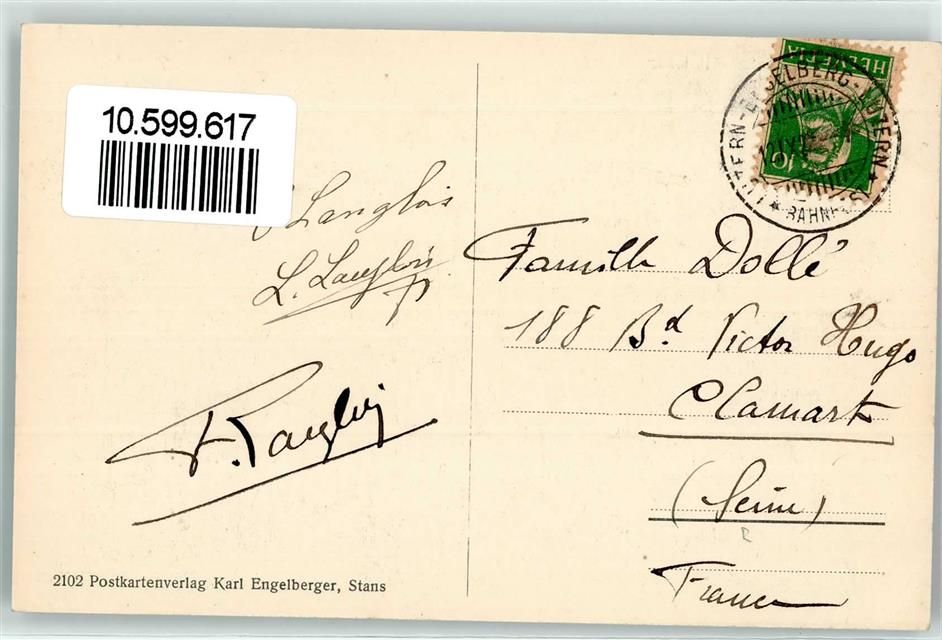 10.599.617
HELVETIA
10
LUZERN-ENGELBERG-LUZERN
BAHNP
Langlois
L. Langlois
Langlois
Famille Dollé
188 Bd Victor Hugo
Clamart
(Seine)
France
2102 Postkartenverlag Karl Engelberger, Stans